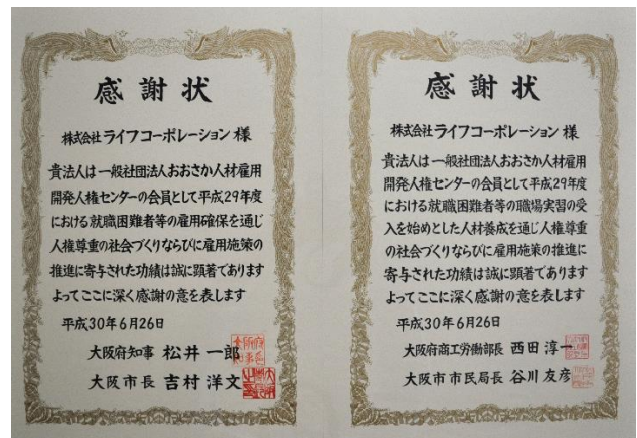 感謝状
株式会社ライフコーポレーション 様
貴法人は一般社団法人おおさか人材雇用
開発人権センターの会員として平成29年度
における就職困難者等の雇用確保を通じ
人権尊重の社会づくりならびに雇用施策の
推進に寄与された功績は誠に顕著であります
よってここに深く感謝の意を表します
平成30年6月26日
大阪府知事 松井 一郎
大阪市長 吉村 洋文
感謝状
株式会社ライフコーポレーション 様
貴法人は一般社団法人おおさか人材雇用
開発人権センターの会員として平成29年度
における就職困難者等の職場実習の受
入を始めとした人材養成を通じ人権尊重
の社会づくりならびに雇用施策の推進に
寄与された功績は誠に顕著であります
よってここに深く感謝の意を表します
平成30年6月26日
大阪府商工労働部長 西田 淳一
大阪市市民局長 谷川 友彦